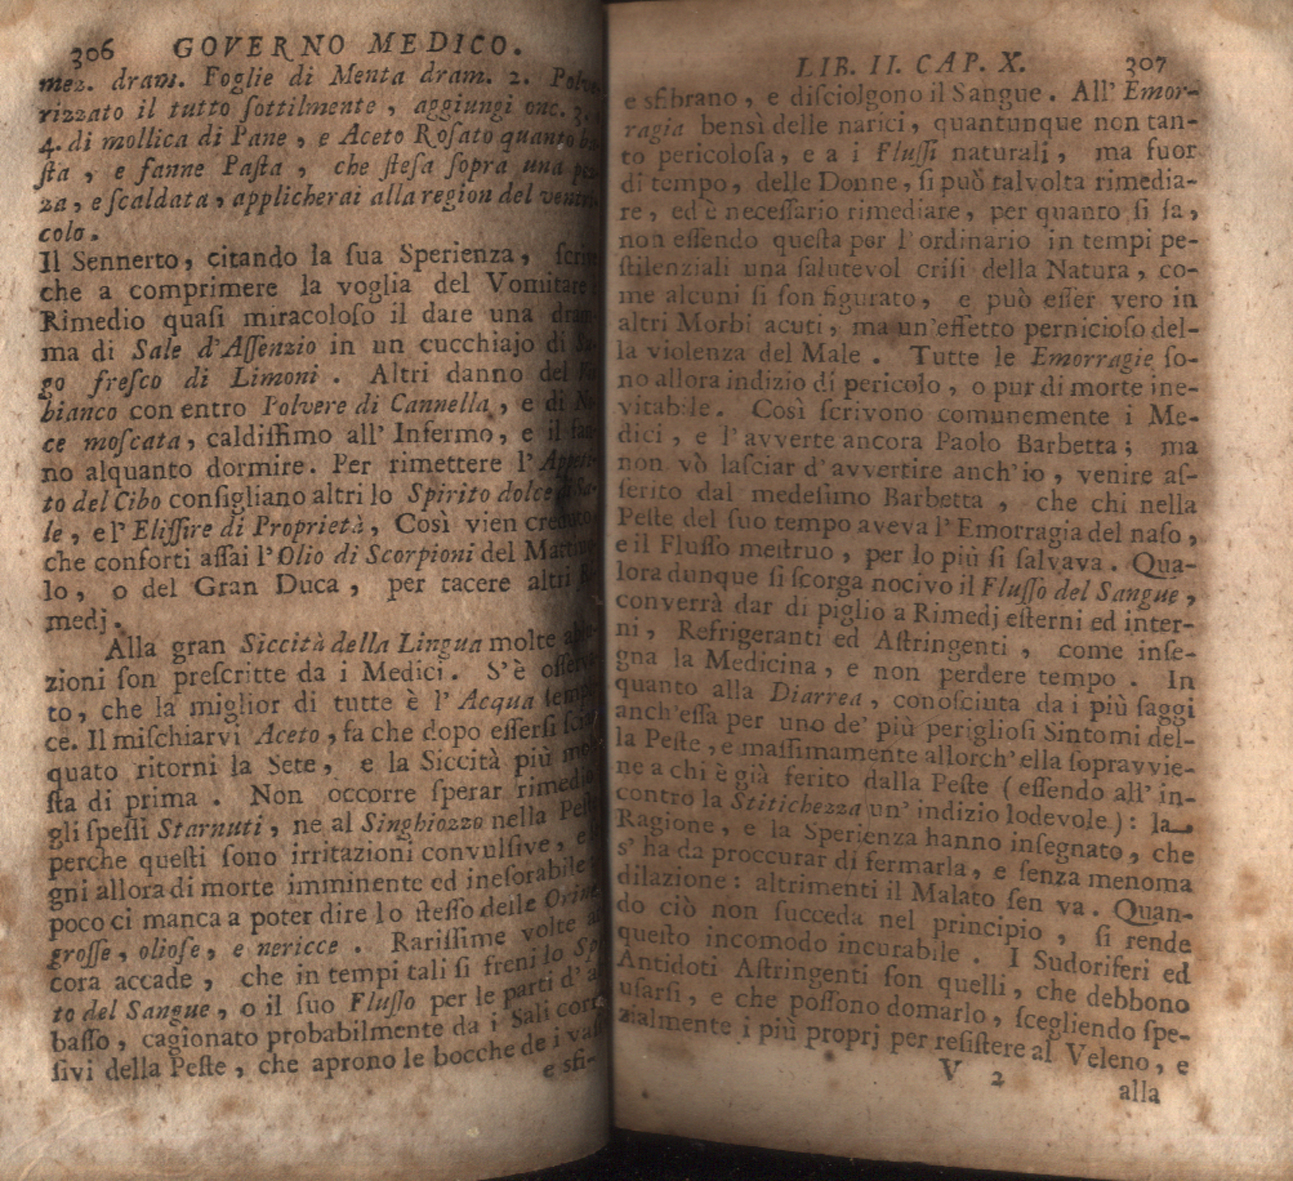 306 GOVERNO MEDICO.
mez. dram. Foglie di Menta dram. 2. Polve-
rizzato il tutto ſottilmente, aggiungi onc. 3.
4. di mollica di Pane, e Aceto Roſato quanto ba-
ſta, e fanne Paſta, che ſteſa ſopra una pez-
za, e ſcaldata, applicherai alla region del ventri-
colo.
Il Sennerto, citando la ſua Sperienza, ſcrive
che a comprimere la voglia del Vomitare è
Rimedio quaſi miracoloſo il dare una dram-
ma di Sale d'Aſſenzio in un cucchiajo di Su-
go freſco di Limoni. Altri danno del Vin
bianco con entro Polvere di Cannella, e di No-
ce moſcata, caldiſſimo all' Infermo, e il fan-
no alquanto dormire. Per rimettere l' Appeti-
to del Cibo conſigliano altri lo Spirito dolce di Sa-
le, e l' Eliſſire di Proprietà, Così vien creduto
che conforti aſſai l' Olio di Scorpioni del Mattiuo-
lo, o del Gran Duca, per tacere altri Ri-
medj.
Alla gran Siccità della Lingua molte ablu-
zioni ſon preſcritte da i Medici. S'è oſſerva-
to, che la miglior di tutte è l' Acqua tempe-
ce. Il miſchiarvi Aceto, fa che dopo eſſerſi ſciac-
quato ritorni la Sete, e la Siccità più mole-
ſta di prima. Non occorre ſperar rimedio
gli ſpeſſi Starnuti, ne al Singhiozzo nella Peſte
perche queſti ſono irritazioni convulſive, e
gni allora di morte imminente ed ineſorabile
poco ci manca a poter dire lo ſteſſo delle Orine
groſſe, olioſe, e nericce. Rariſſime volte an-
cora accade, che in tempi tali ſi freni lo Spu-
to del Sangue, o il ſuo Fluſſo per le parti d' ab-
baſſo, cagionato probabilmente da i Sali corro-
ſivi della Peſte, che aprono le bocche de i vaſi
e sfi-
LIB. II. CAP. X. 307
e sfibrano, e diſciolgono il Sangue. All' Emor-
ragia bensì delle narici, quantunque non tan-
to pericoloſa, e a i Fluſſi naturali, ma fuor
di tempo, delle Donne, ſi può talvolta rimedia-
re, ed è neceſſario rimediare, per quanto ſi ſa,
non eſſendo queſta per l' ordinario in tempi pe-
ſtilenziali una ſalutevol criſi della Natura, co-
me alcuni ſi ſon figurato, e può eſſer vero in
altri Morbi acuti, ma un' effetto pernicioſo del-
la violenza del Male. Tutte le Emorragie ſo-
no allora indizio di pericolo, o pur di morte ine-
vitabile. Così ſcrivono comunemente i Me-
dici, e l' avverte ancora Paolo Barbetta; ma
non vò laſciar d' avvertire anch' io, venire aſ-
ſerito dal medeſimo Barbetta, che chi nella
Peſte del ſuo tempo aveva l' Emorragia del naſo,
e il Fluſſo meſtruo, per lo più ſi ſalvava. Qua-
lora dunque ſi ſcorga nocivo il Fluſſo del Sangue,
converrà dar di piglio a Rimedj eſterni ed inter-
ni, Refrigeranti ed Aſtringenti, come inſe-
gna la Medicina, e non perdere tempo. In
quanto alla Diarrea, conoſciuta da i più ſaggi
anch' eſſa per uno de' più periglioſi Sintomi del-
la Peſte, e maſſimamente allorch' ella ſopravvie-
ne a chi è già ferito dalla Peſte (eſſendo all' in-
contro la Stitichezza un' indizio lodevole): la
Ragione, e la Sperienza hanno inſegnato, che
s' ha da proccurar di fermarla, e ſenza menoma
dilazione: altrimenti il Malato ſen va. Quan-
do ciò non ſucceda nel principio, ſi rende
queſto incomodo incurabile. I Sudoriferi ed
Antidoti Aſtringenti ſon quelli, che debbono
uſarſi, e che poſſono domarlo, ſcegliendo ſpe-
zialmente i più proprj per reſiſtere al Veleno, e
V 2
alla